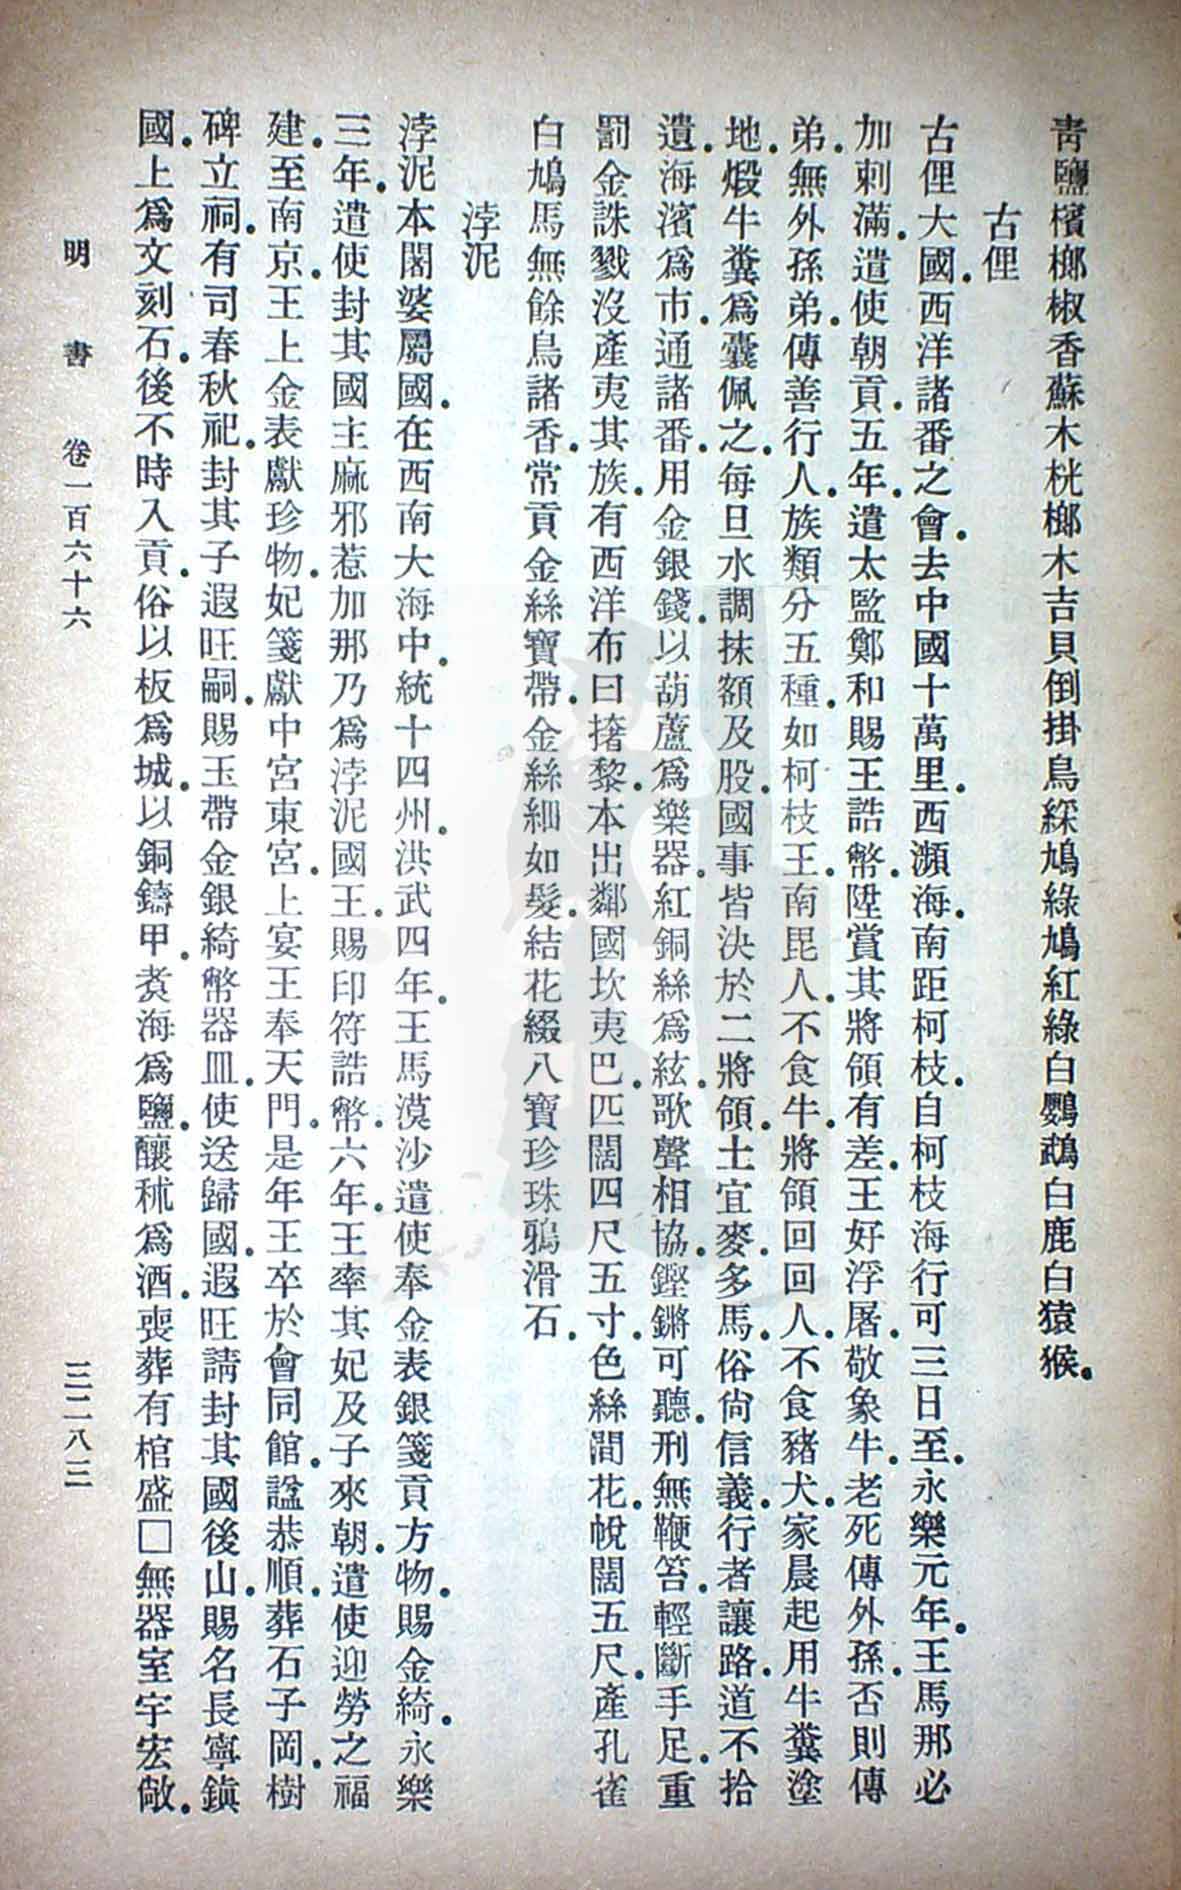 青鹽檳榔椒香蘇木桄榔木吉貝倒掛鳥綵鳩綠鳩紅綠白鸚鵡白鹿白猿猴。
古俚
古俚大國。西洋諸番之會。去中國十萬里。西瀕海。南距柯枝。自柯枝海行可三日至。永樂元年。王馬那必
加剌滿。遣使朝貢。五年。遣太監鄭和賜王誥幣。陞賞其將領有差。王好浮屠。敬象牛。老死傳外孫。否則傳
弟。無外孫弟。傳善行人。族類分五種。如柯枝王。南毘人。不食牛。將領回回人。不食豬犬。家晨起用牛糞塗
地。煅牛糞爲囊佩之。每旦水調抹額及股。國事皆決於二將領。土宜麥。多馬。俗尙信義。行者讓路。道不拾
遺。海濱爲市。通諸番。用金銀錢。以葫蘆爲樂器。紅銅絲爲絃。歌聲相協。鏗鏘可聽。刑無鞭笞。輕斷手足。重
罰金誅戮沒產夷其族。有西洋布曰撦黎。本出鄰國坎夷巴。匹闊四尺五寸。色絲間花。帨闊五尺。產孔雀
白鳩馬無餘鳥諸香。常貢金絲寶帶。金絲細如髮。結花綴八寶珍珠鴉滑石。
浡泥
浡泥本闍婆屬國。在西南大海中。統十四州。洪武四年。王馬漠沙遣使奉金表銀箋貢方物。賜金綺。永樂
三年。遣使封其國主麻邪惹加那乃爲浡泥國王。賜印符誥幣。六年。王率其妃及子來朝。遣使迎勞之福
建。至南京。王上金表獻珍物。妃箋獻中宮東宮。上宴王奉天門。是年王卒於會同館。諡恭順。葬石子岡。樹
碑立祠。有司春秋祀。封其子遐旺嗣。賜玉帶金銀綺幣器皿。使送歸國。遐旺請封其國後山。賜名長寧鎮
國。上爲文刻石。後不時入貢。俗以板爲城。以銅鑄甲。煑海爲鹽。釀秫爲酒。喪葬有棺盛□無器室宇宏敞。
明書 卷一百六十六 三二八三